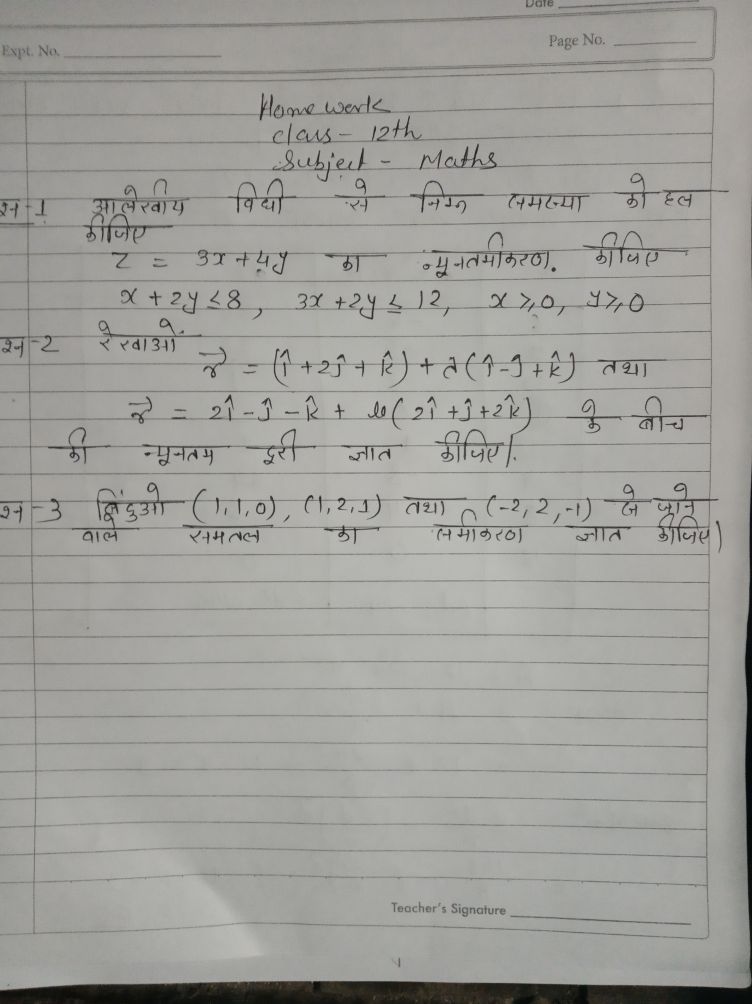 Date
Expt. No.
Page No.
Home work
class - 12th
Subject - Maths
प्रश्न-1 आलेखीय विधी से निम्न समस्या को हल
कीजिए
Z = 3x + 4y का न्यूनतमीकरण. कीजिए
x + 2y ≤ 8, 3x + 2y ≤ 12, x ≥ 0, y ≥ 0
श्न-2 रेखाओं
r⃗ = (î + 2ĵ + k̂) + λ(î - ĵ + k̂) तथा
r⃗ = 2î - ĵ - k̂ + μ(2î + ĵ + 2k̂) के बीच
की न्यूनतम दूरी ज्ञात कीजिए।
श्न-3 बिंदुओ (1, 1, 0), (1, 2, 1) तथा (-2, 2, -1) से जाने
वाले समतल का समीकरण ज्ञात कीजिए।
Teacher's Signature